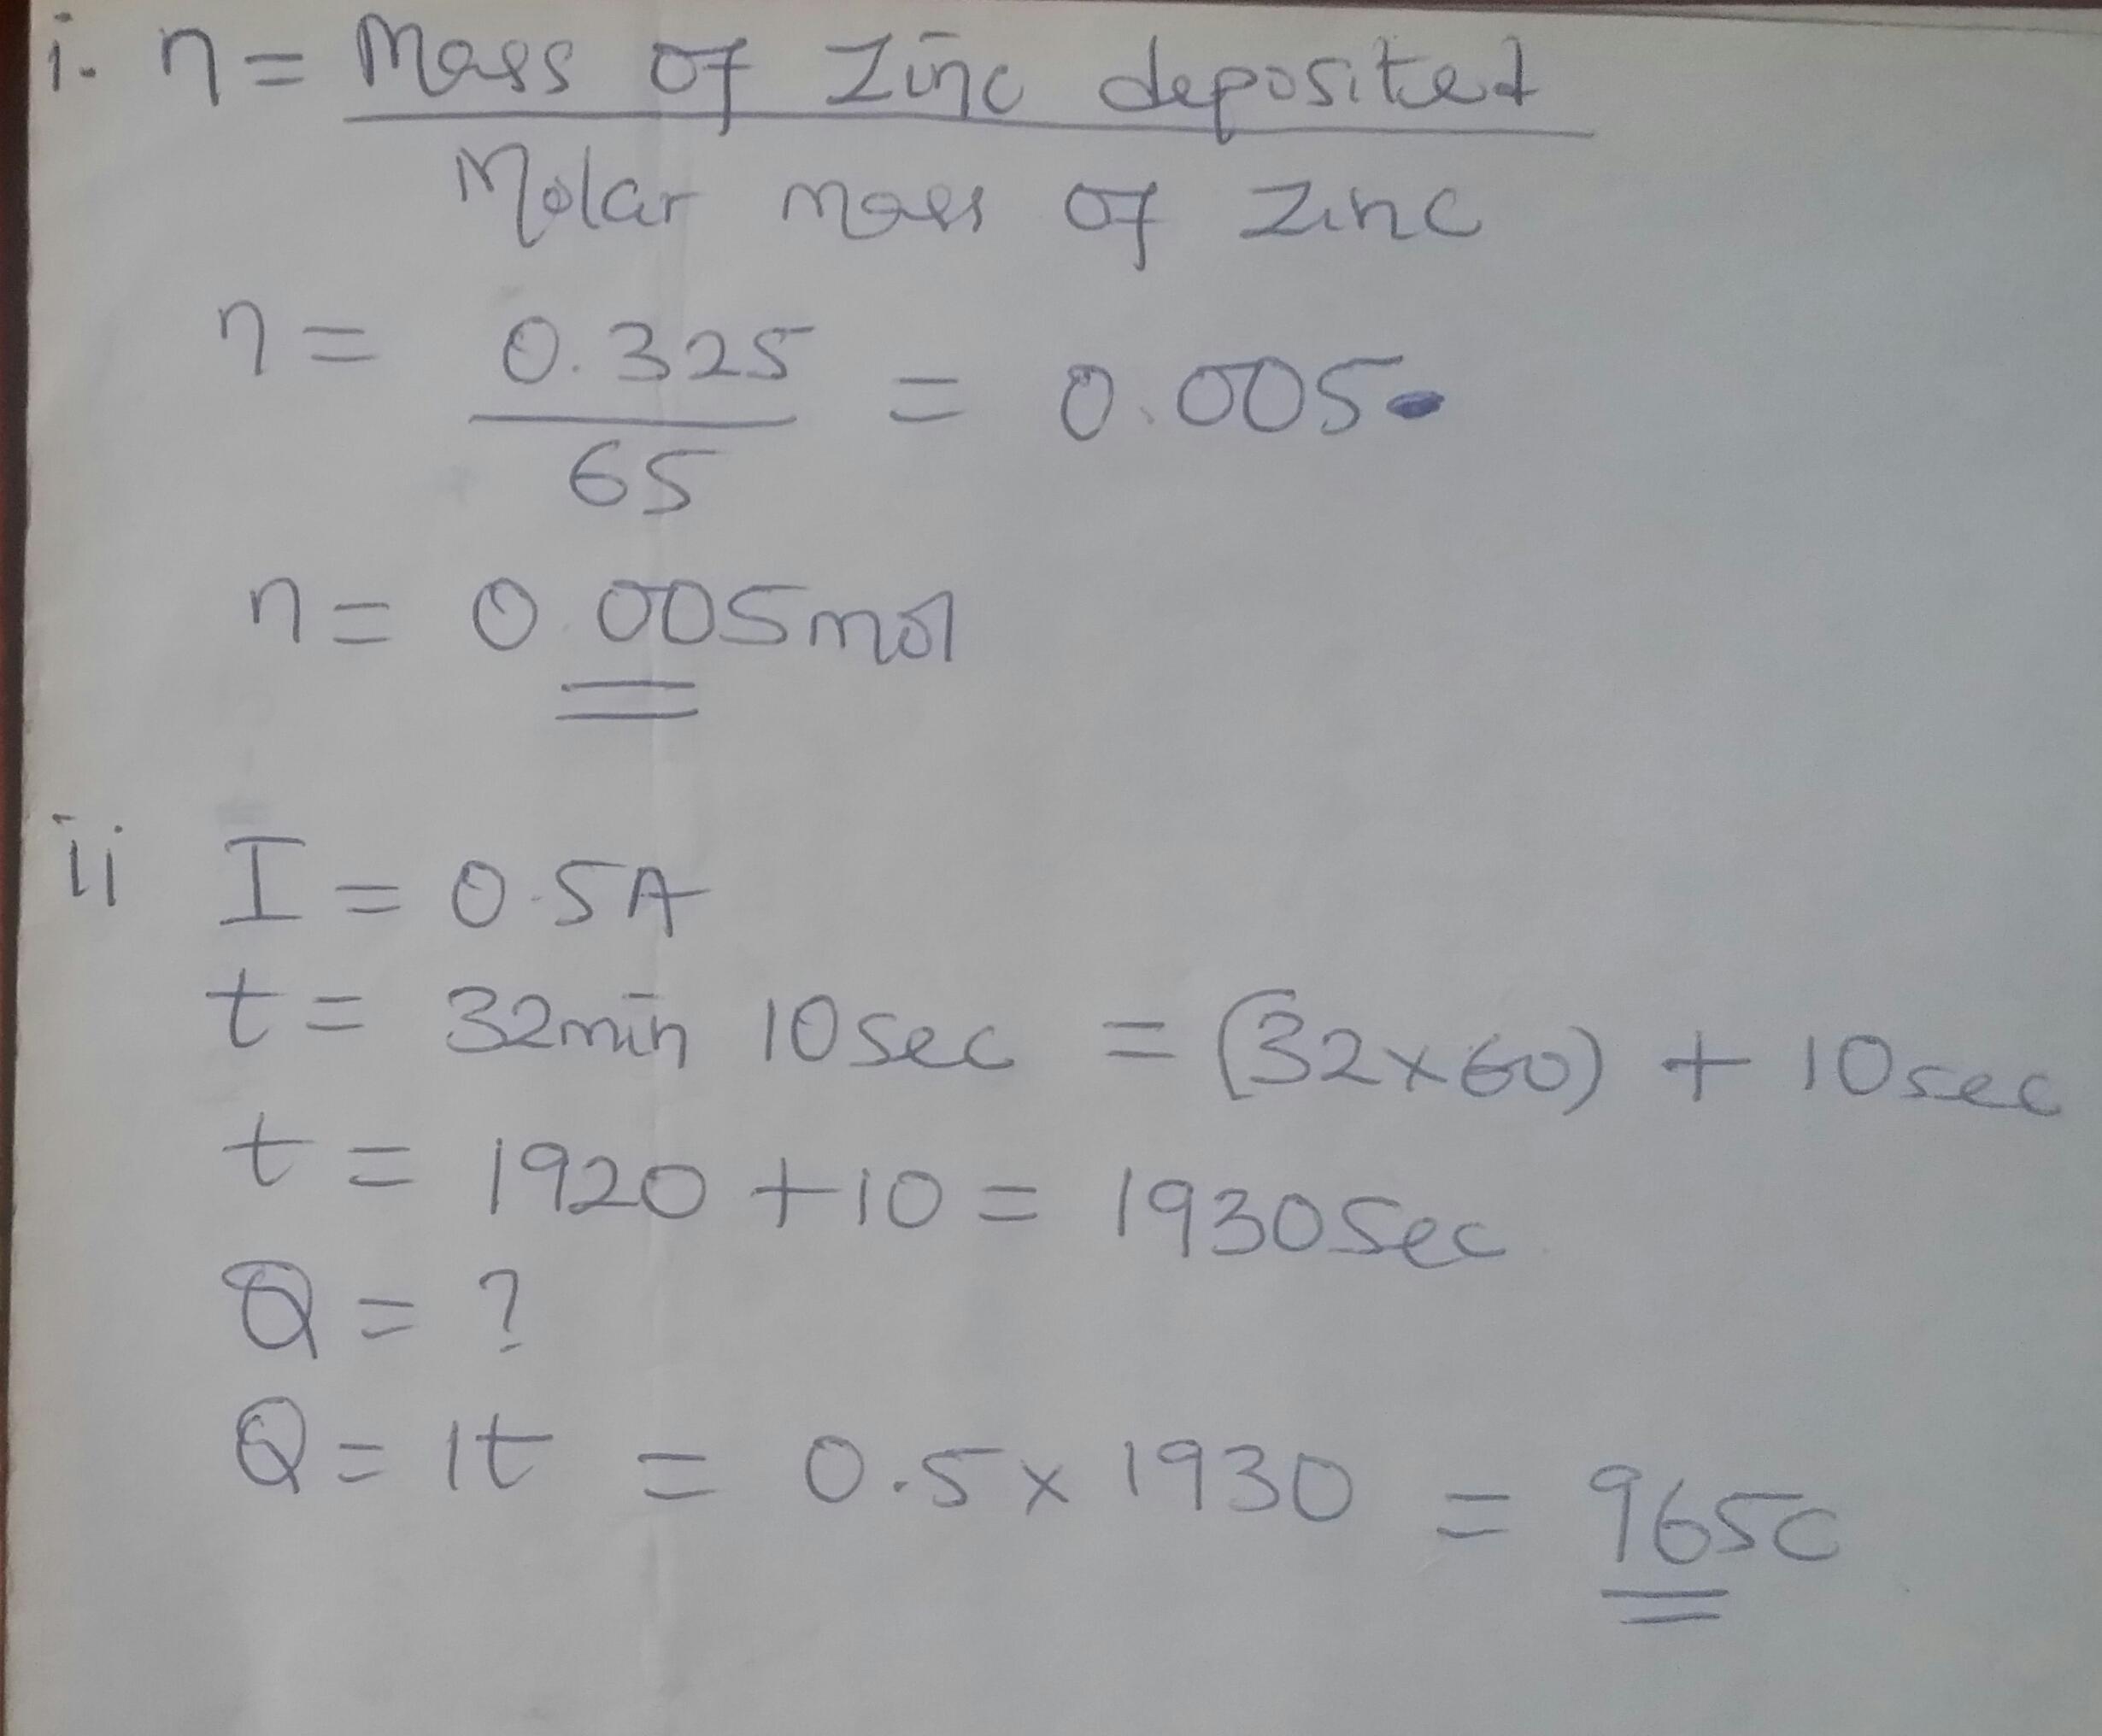 i. n = Mass of Zinc deposited
Molar mass of Zinc
n = 0.325 = 0.005
65
n = 0.005mol
ii I = 0.5A
t = 32min 10sec = (32x60) + 10sec
t = 1920 + 10 = 1930Sec
Q = ?
Q = It = 0.5x1930 = 965C